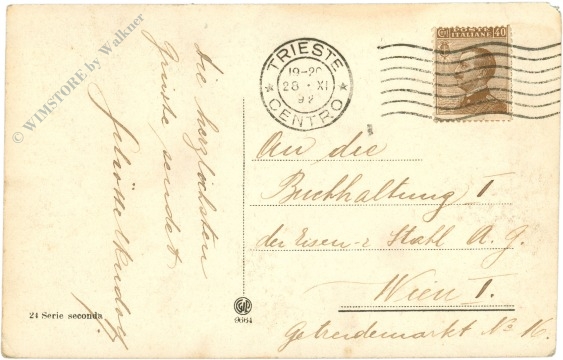 © WIMSTORE by Walkner
Die herzlichsten
Grüsse sendet
TRIESTE
19-20
28 · XI
CENTRO
40
An die
Buchhaltung I
der Eisen-& Stahl A. G.
Wien I.
Getreidemarkt No 16.
24 Serie seconda
9664